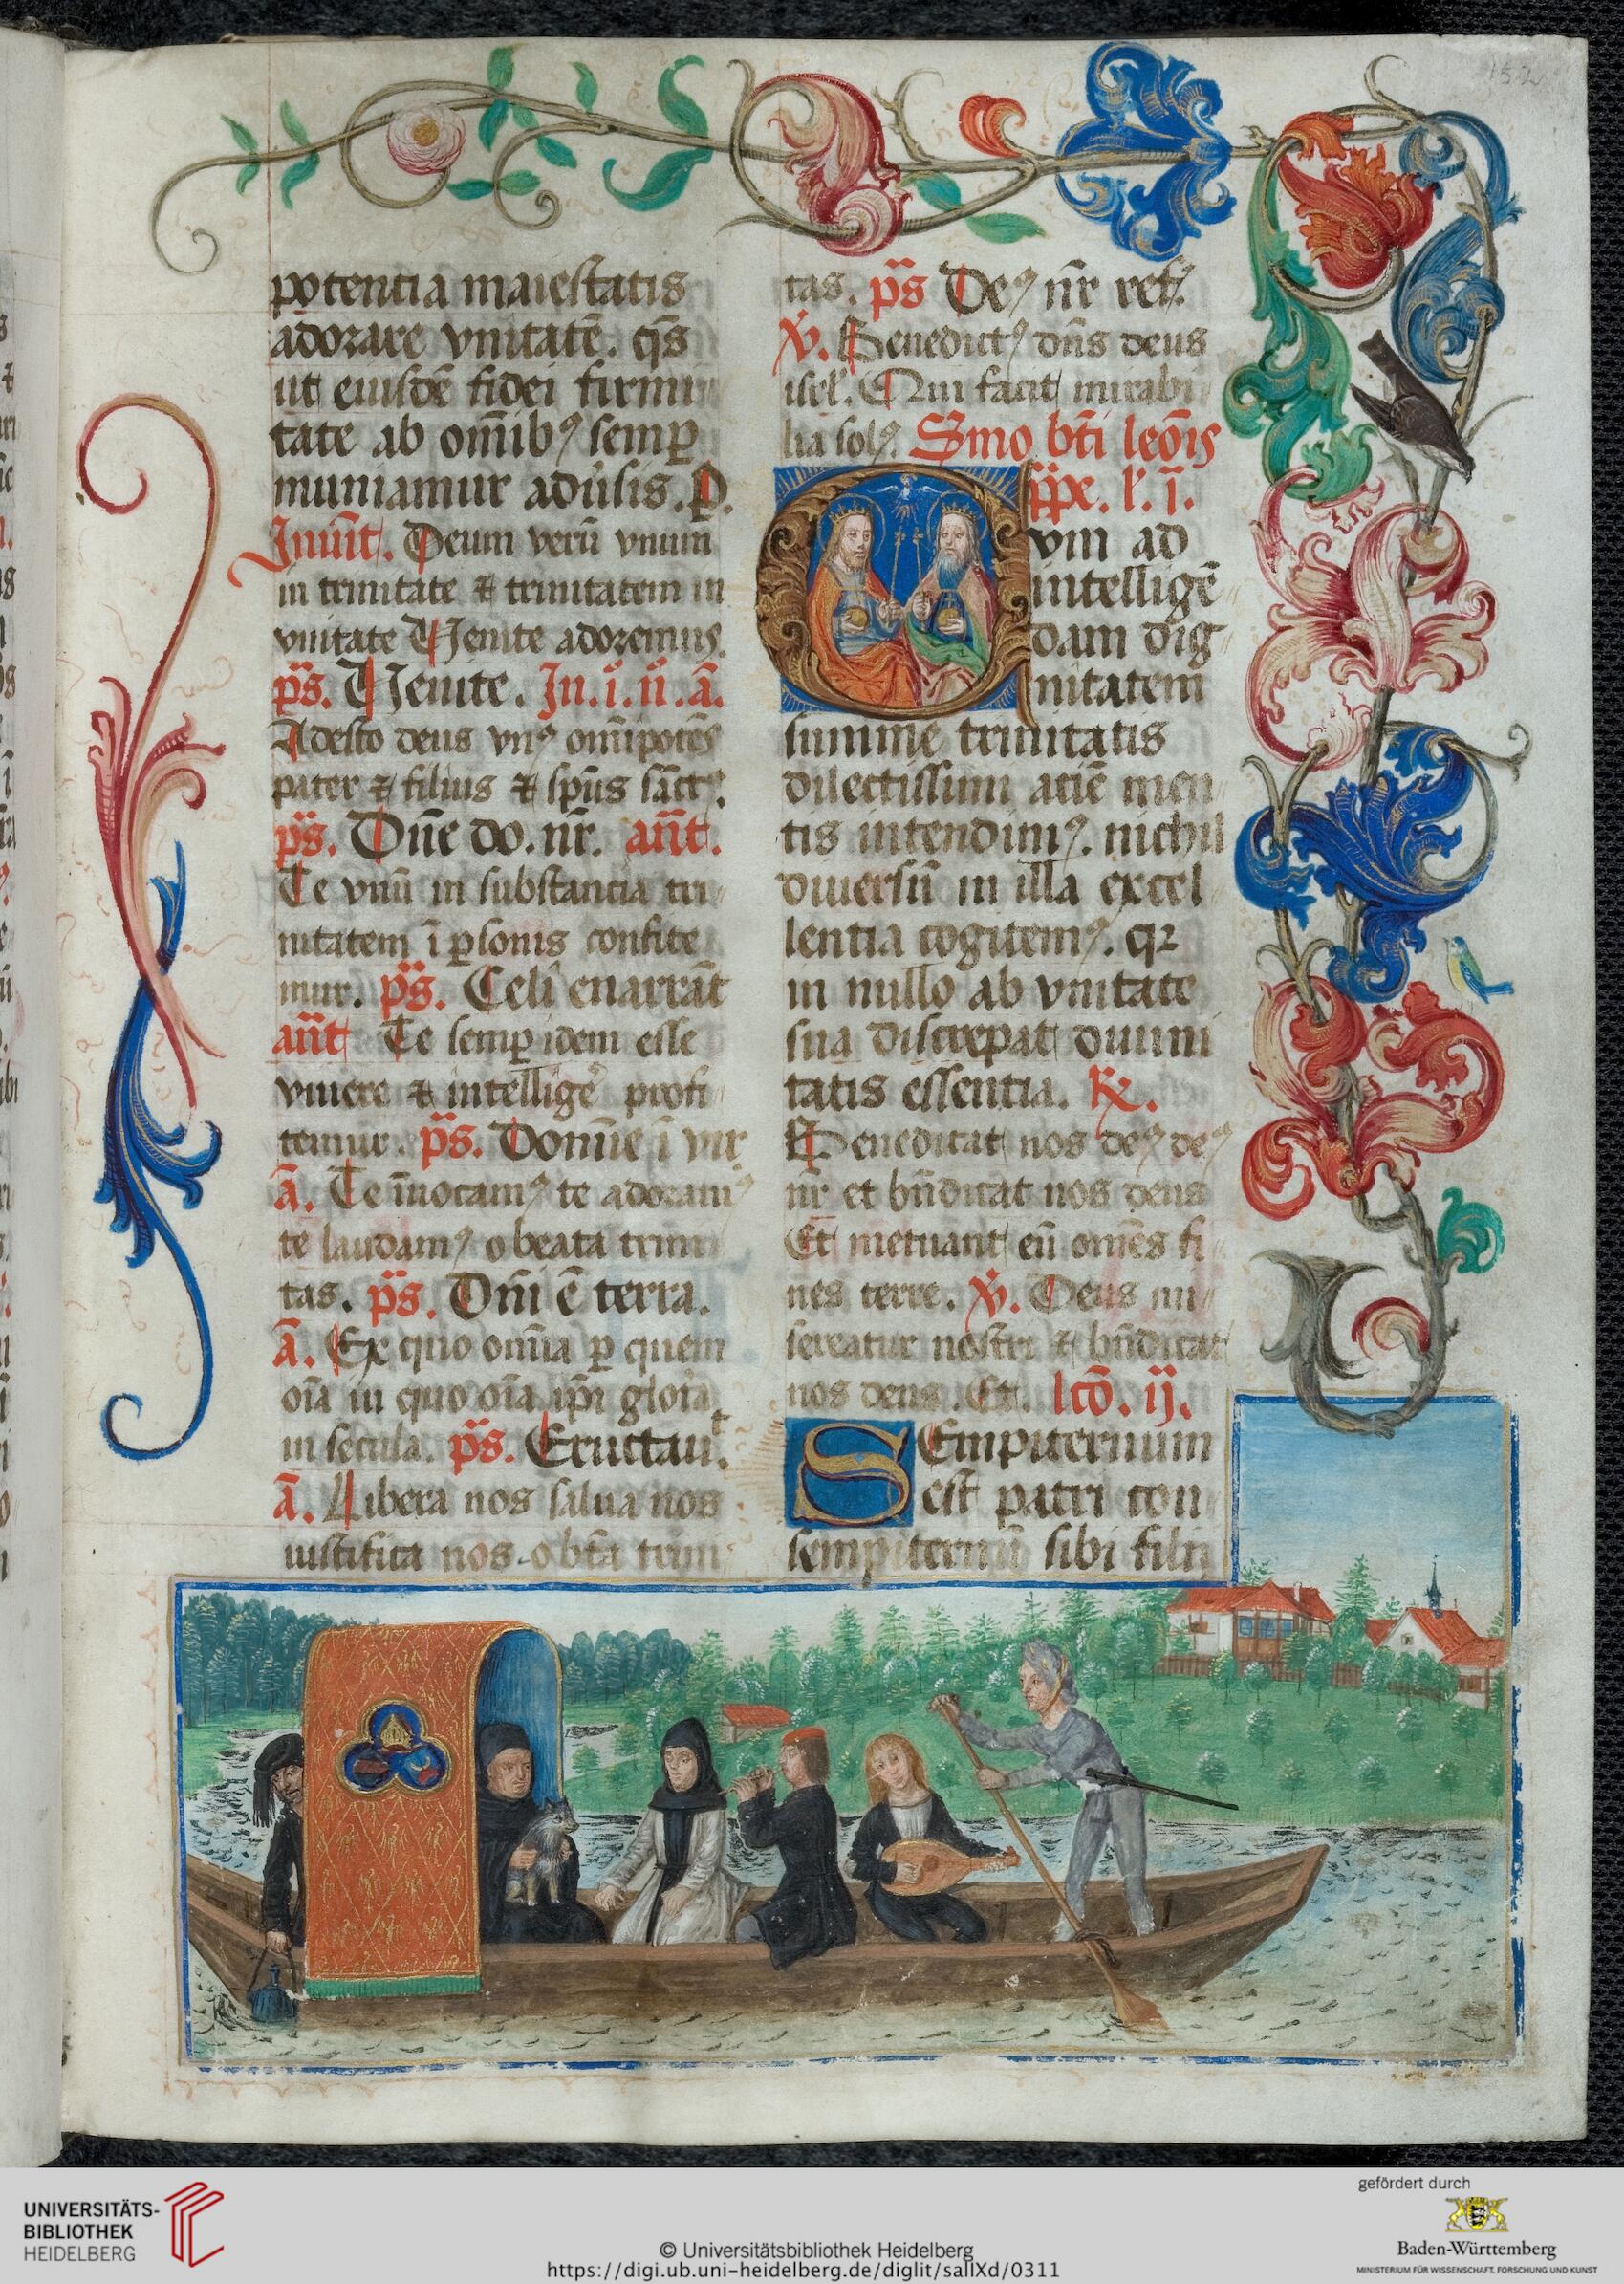 152
potentia maiestatis
adorare vnitatē. qs̄
ut eiusdē fidei firmi
tate ab om̄ibꝰ semꝑ
muniamur adūsis. P.
Inuit̄. Deum verū vnum
in trinitate ⁊ trinitatem in
vnitate Venite adoremus.
ps̄. Venite. In. i. n̄. ā.
Adesto deus vnꝰ om̄ipotēs
pater ⁊ filius ⁊ spūs sāctꝰ.
ps̄. Dn̄e do. nr̄. an̄t.
Te vnū in substantia tri
nitatem ī ꝑsonis confite
mur. ps̄. Celi enarrāt
an̄t Te semꝑ idem esse
viuere ⁊ intelligē profi
temur. ps̄. Domīe ī vir
ā. Te īuocamꝰ te adoramꝰ
te laudamꝰ o beata trini
tas. ps̄. Dn̄i ē terra.
ā. Ex quo om̄ia ꝑ quem
oīa in quo oīa ip̄i gloīa
in secula. ps̄. Eructauᵗ.
ā. Libera nos salua nos
iustifica nos o btā trini
tas. ps̄ Deꝰ nr̄ ref.
℣. Benedictꝰ dn̄s deus
isrl̄. Qui facit mirabi
lia solꝰ. Smo bt̄i leōis
ppe. l. ī.
Qvm ad
intelligē
dam dig
nitatem
summe trinitatis
dilectissimi aciē men
tis intendimꝰ. nichil
diuersū in illa excel
lentia cogitemꝰ. qꝛ
in nullo ab vnitate
sua discrepat diuini
tatis essentia. ℟.
Benedicat nos deꝰ deꝰ
nr̄ et bn̄dicat nos deus
Et metuant eū om̄es fi
nes terre. ℣. Deus mi
sereatur nostri ⁊ bn̄dicat
nos deus. Et. lcō. ij.
SEmpiternum
est patri con
sempiternū sibi filii
UNIVERSITÄTS-
BIBLIOTHEK
HEIDELBERG
© Universitätsbibliothek Heidelberg
https://digi.ub.uni-heidelberg.de/diglit/salIXd/0311
gefördert durch
Baden-Württemberg
MINISTERIUM FÜR WISSENSCHAFT, FORSCHUNG UND KUNST